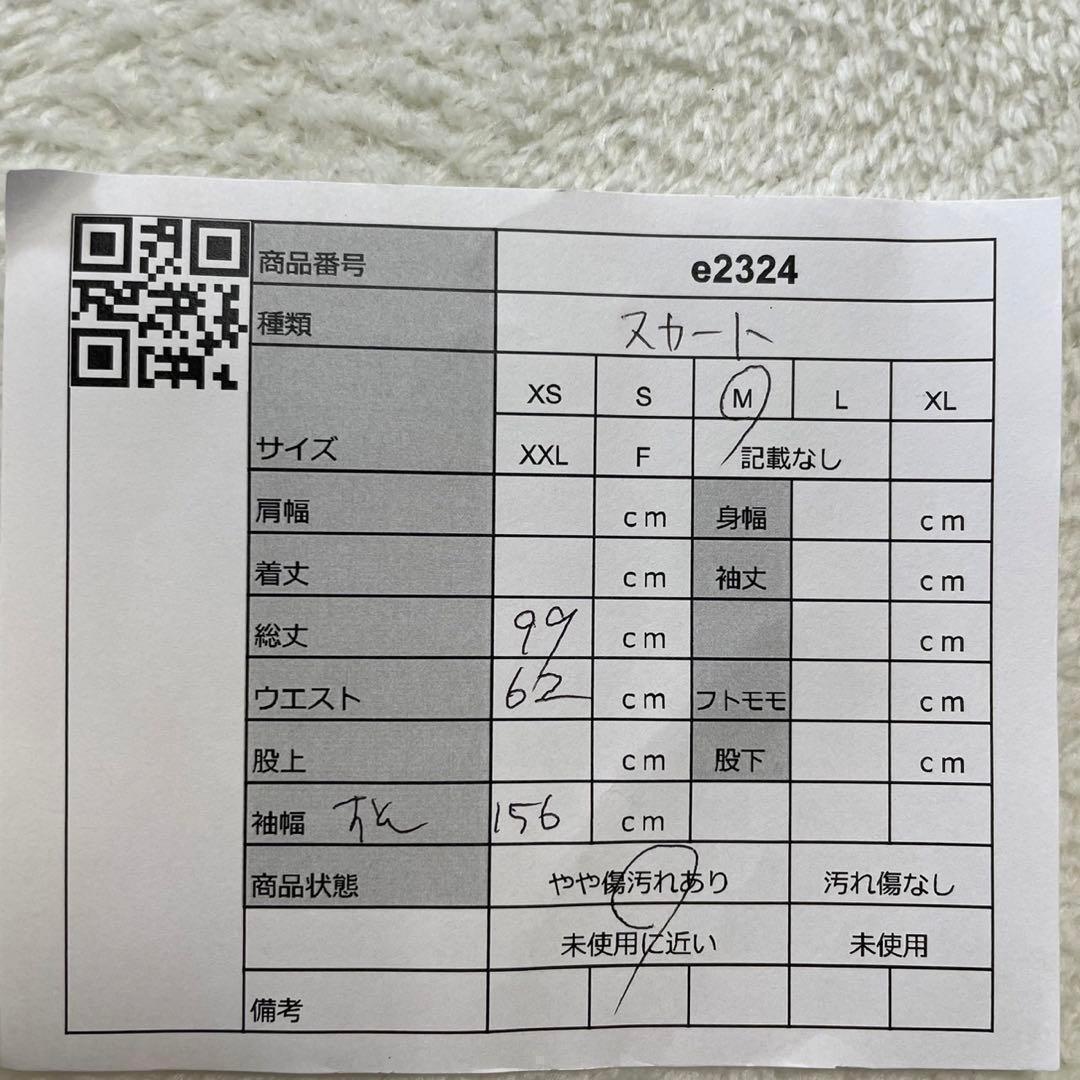 商品番号 e2324
種類 スカート
サイズ XS S M L XL
XXL F 記載なし
肩幅 cm 身幅 cm
着丈 cm 袖丈 cm
総丈 99 cm cm
ウエスト 62 cm フトモモ cm
股上 cm 股下 cm
袖幅 すそ 156 cm
商品状態 やや傷汚れあり 汚れ傷なし
未使用に近い 未使用
備考